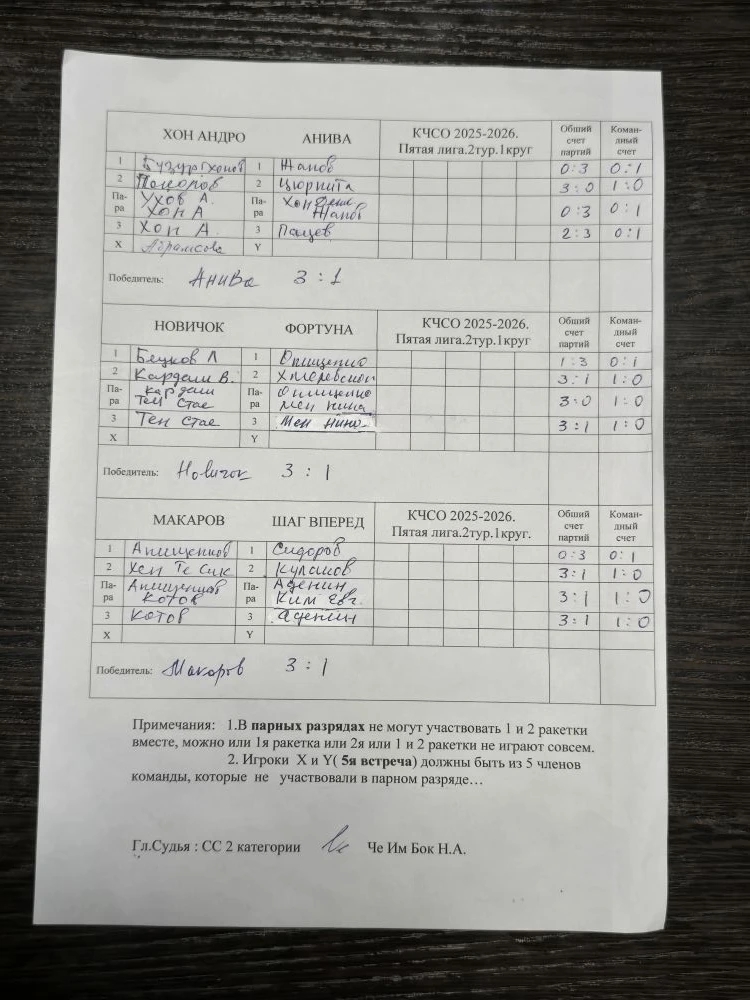 ХОН АНДРО АНИВА КЧСО 2025-2026. Пятая лига.2тур.1круг Общий счет партий Коман-дный счет
1 1 Жапов 0:3 0:1
2 Покоров 2 3:0 1:0
Па-ра Ухов А. Па-ра Хон
Хон А Жапов 0:3 0:1
3 Хон А. 3 Пацев 2:3 0:1
X Абрамсова Y
Победитель: Анива 3:1
НОВИЧОК ФОРТУНА КЧСО 2025-2026. Пятая лига.2тур.1круг Общий счет партий Коман-дный счет
1 Бецков Л 1 Онищенко 1:3 0:1
2 Кардаш В. 2 3:1 1:0
Па-ра Кардаш Па-ра Онищенко
Тен Стас Мен Нина 3:0 1:0
3 Тен Стас 3 Мен Нина 3:1 1:0
X Y
Победитель: Новичок 3:1
МАКАРОВ ШАГ ВПЕРЕД КЧСО 2025-2026. Пятая лига.2тур.1круг. Общий счет партий Коман-дный счет
1 Анищенков 1 Сидоров 0:3 0:1
2 Хен Те Сик 2 Кулаков 3:1 1:0
Па-ра Анищенков Па-ра Аденин
Котов Ким Евг. 3:1 1:0
3 Котов 3 Аденин 3:1 1:0
X Y
Победитель: Макаров 3:1
Примечания: 1.В парных разрядах не могут участвовать 1 и 2 ракетки
вместе, можно или 1я ракетка или 2я или 1 и 2 ракетки не играют совсем.
2. Игроки X и Y( 5я встреча) должны быть из 5 членов
команды, которые не участвовали в парном разряде…
Гл.Судья : СС 2 категории Че Им Бок Н.А.